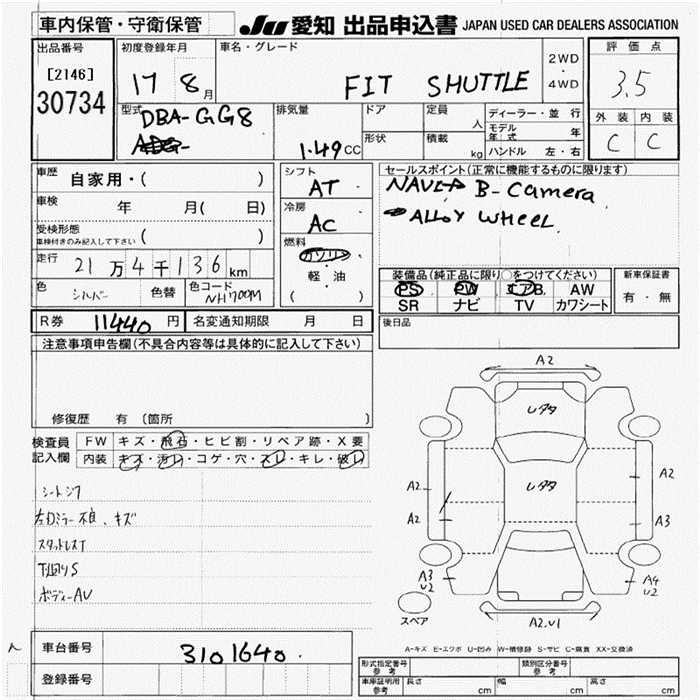 車内保管・守衛保管
JU 愛知 出品申込書 JAPAN USED CAR DEALERS ASSOCIATION
出品番号
[2146]
30734
初度登録年月
17 8月
車名・グレード
FIT SHUTTLE
2WD
・
4WD
評価点
3.5
外装 内装
C C
型式
DBA-GG8
排気量
1.49cc
ドア
形状
定員
人
積載
kg
ディーラー・並行
モデル年式 年
ハンドル 左・右
車歴
自家用・( )
車検
年 月( 日)
受検形態
車検付きのみ記入して下さい
( )
走行
21万4千136km
色
シルバー
色替
色コード
NH700M
シフト
AT
冷房
AC
燃料
ガソリン
軽・油
( )
セールスポイント(正常に機能するものに限ります)
NAVI B-Camera
ALLOY WHEEL
装備品(純正品に限り○をつけてください)
PS PW エアB. AW
SR ナビ TV カワシート
新車保証書
有・無
R券 11440円
名変通知期限 月 日
後日品
注意事項申告欄(不具合内容等は具体的に記入して下さい)
修復歴 有 (箇所 )
検査員記入欄
FW キズ・飛石・ヒビ割・リペア跡・X要
内装 キズ・汚レ・コゲ・穴・スレ・キレ・破レ
シートシワ
右Dミラー不良、キズ
スタッドレスT
下廻りS
ボディーAU
A2
レタタ
レタタ
A2
A2
A2
A3
A3
U2
A4
U2
A2.U1
スペア
A-キズ E-エクボ U-凹み W-補修跡 S-サビ C-腐食 XX-交換済
車台番号
3101640
登録番号
形式指定番号
参考
類別区分番号
参考
車庫証明用
参考
長さ cm
幅 cm
高さ cm